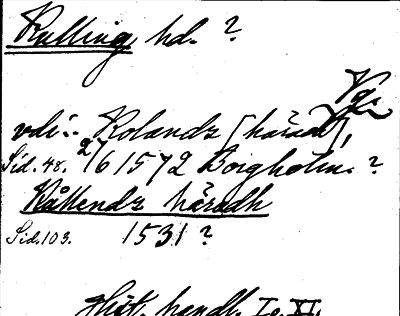 Kulling hd. ?
Vg.
vdi:- Kolandz [härad],
Sid. 48. 2/6 1572 Borgholm. ?
Kållendz häradh
Sid. 103. 1531 ?
Hist. handl. I o. XI.